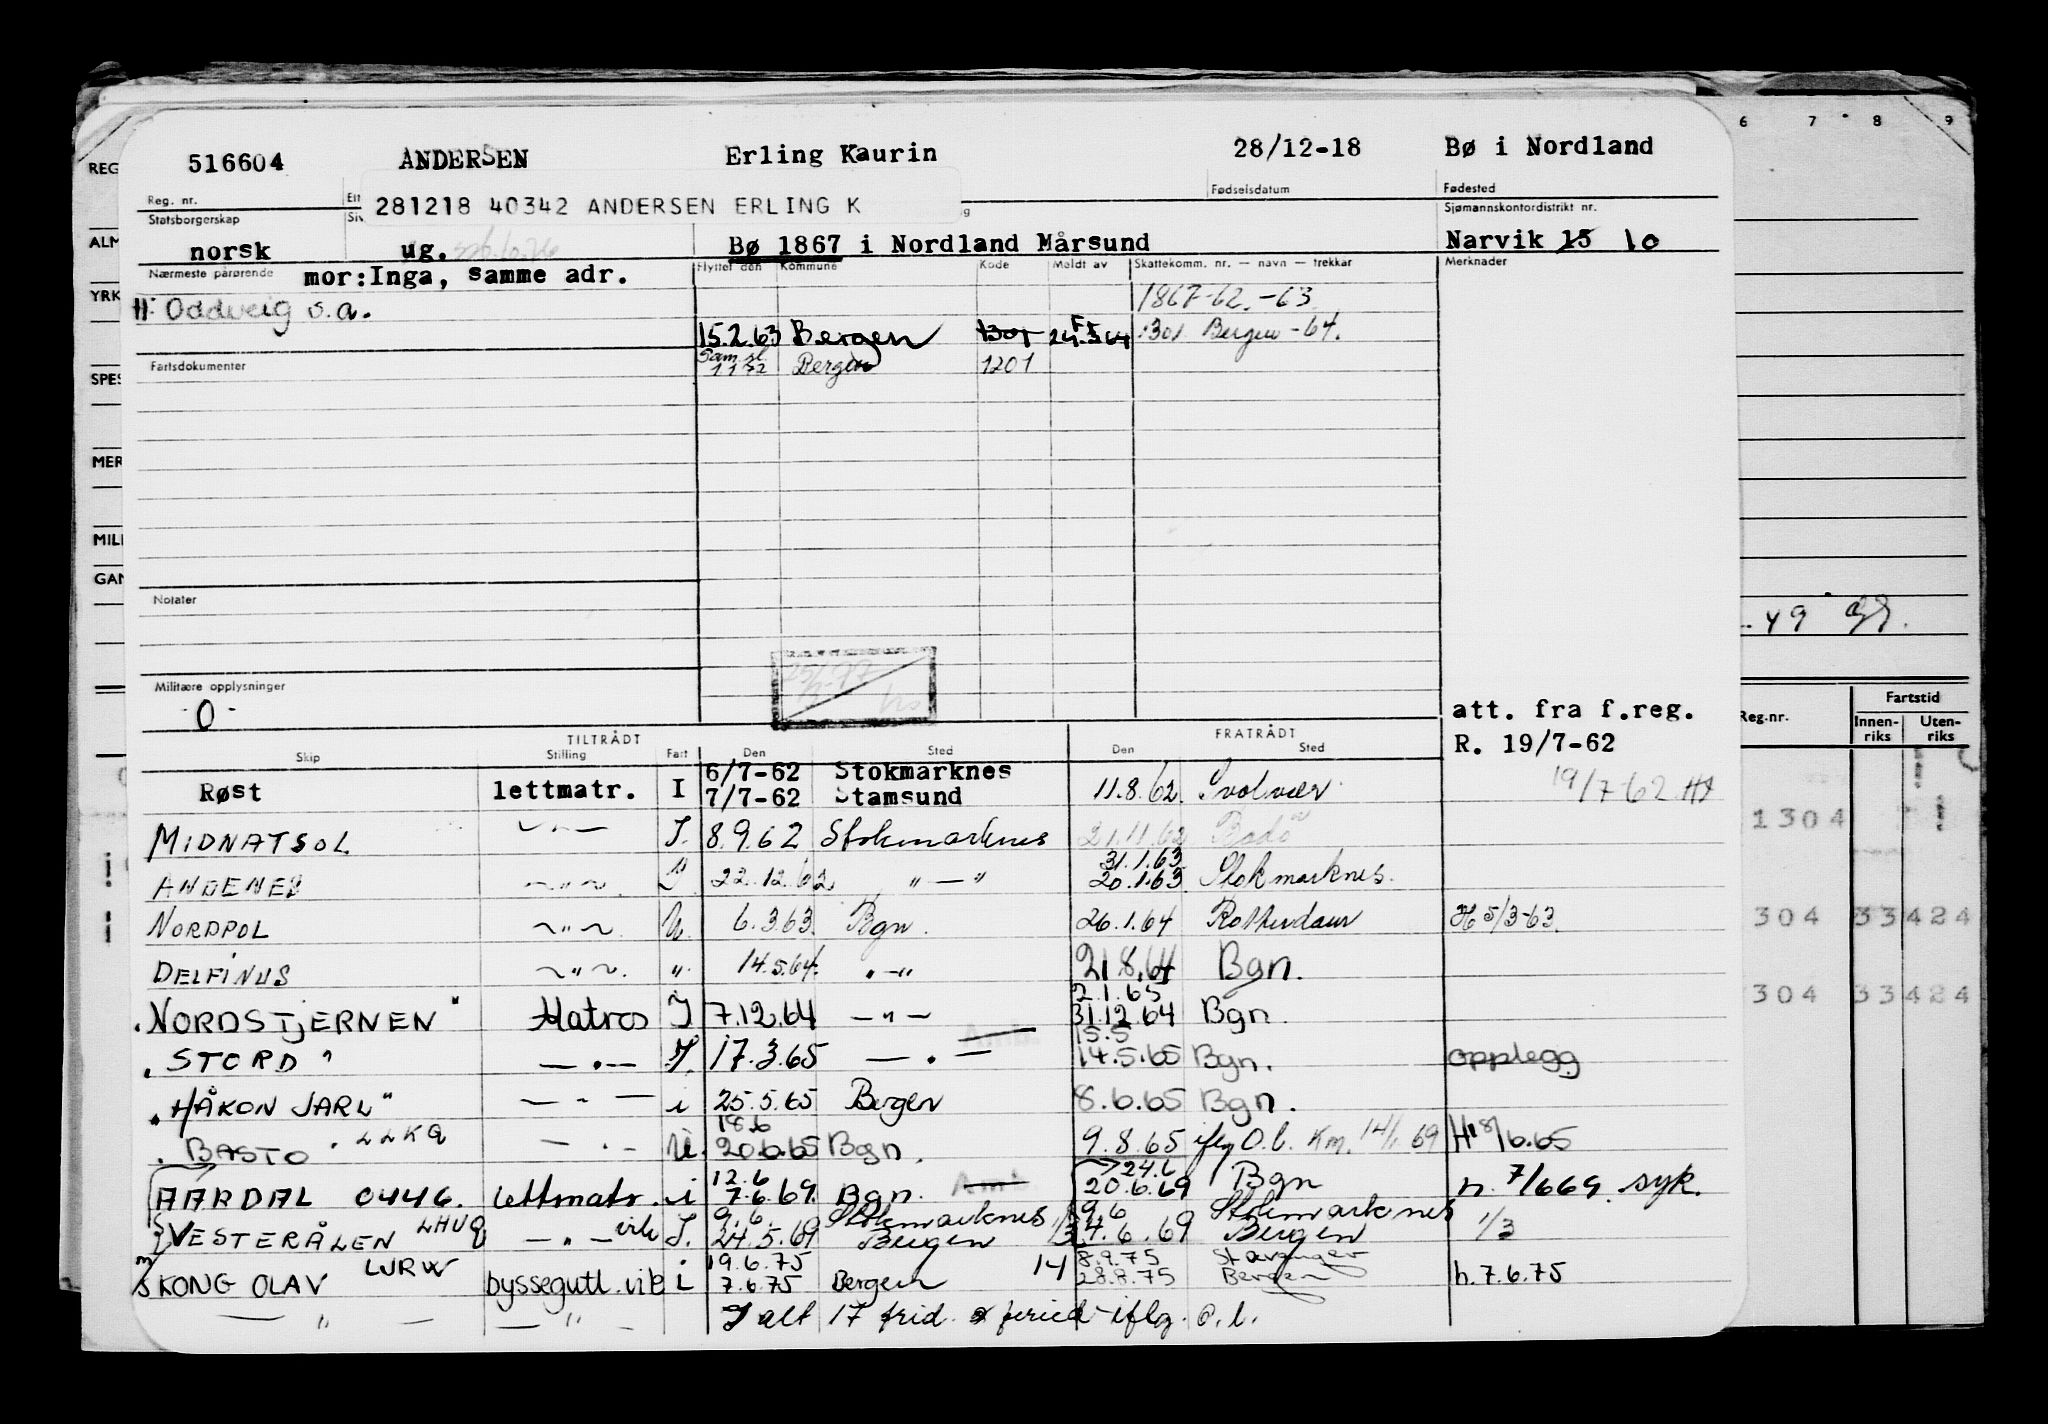 516604 ANDERSEN Erling Kaurin 28/12-18 Bø i Nordland
Reg. nr. Fødselsdatum Fødested
281218 40342 ANDERSEN ERLING K
Statsborgerskap Sjømannskontordistrikt nr.
norsk ug. Bø 1867 i Nordland Mårsund Narvik 15 10
Nærmeste pårørende mor:Inga, samme adr. Flyttet den Kommune Kode Meldt av Skattekomm. nr. — navn — trekkar Merknader
H: Oddveig s.a. 1867-62.-63
15.2.63 Bergen 1301 24.3.64 1301 Bergen -64.
Fartsdokumenter 1172 Bergen 1201
Notater
Militære opplysninger
-0-
att. fra f.reg.
R. 19/7-62
TILTRÅDT FRATRÅDT
Skip Stilling Fart Den Sted Den Sted
6/7-62 Stokmarknes
Røst lettmatr. I 7/7-62 Stamsund 11.8.62 Svolvær 19/7-62
MIDNATSOL —"— I. 8.9.62 Stokmarknes 21.11.62 Bodø
31.1.63
ANDENES —"— I 22.12.62 "—" 20.1.63 Stokmarknes.
NORDPOL —"— U. 6.3.63 Bgn. 26.1.64 Rotterdam H 5/3-63.
DELFINUS —"— ". 14.5.64. "—" 21.8.64 Bgn.
2.1.65
"NORDSTJERNEN" Matros I 7.12.64 —"— 31.12.64 Bgn.
15.5
"STORD" —"— I. 17.3.65 —"— 14.5.65 Bgn. opplegg
"HÅKON JARL" —"— i 25.5.65 Bergen 8.6.65 Bgn.
18.6
"BASTO" LLKQ —"— U. 20.6.65 Bgn. 9.8.65 iflg O.b. Km. 14/1 69 H 18/6.65
12.6 24.6
AARDAL 0446. lettmatr. i 7.6.69. Bgn. 20.6.69 Bgn h. 7/669. syk.
9.6 Stokmarknes 9.6 Stokmarknes
VESTERÅLEN LHUQ —"— vik I. 24.5.69 Bergen 1/3 4.6.69 Bergen 1/3
19.6.75 14 8.9.75 Stavanger
KONG OLAV LJRW byssegutt. vik i 7.6.75 Bergen 28.8.75 Bergen h.7.6.75
— " — — " — I alt 17 frid. iflg. o.l.
REG
ALM
YRK
SPES
MER
MILI
GAN
6 7 8 9
Reg.nr. Fartstid
Innen-riks Uten-riks
1304
304 33424
304 33424